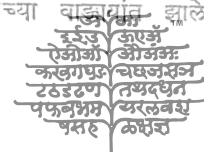 च्या वाङ्मयात झाले
अ आ
TM
इ ई उ ऊ ए ॲ
ऐ ओ औ ऑ अं अः
क ख ग घ ङ च छ ज झ ञ
ट ठ ड ढ ण त थ द ध न
प फ ब भ म य र ल व श
ष स ह ळ क्ष ज्ञ